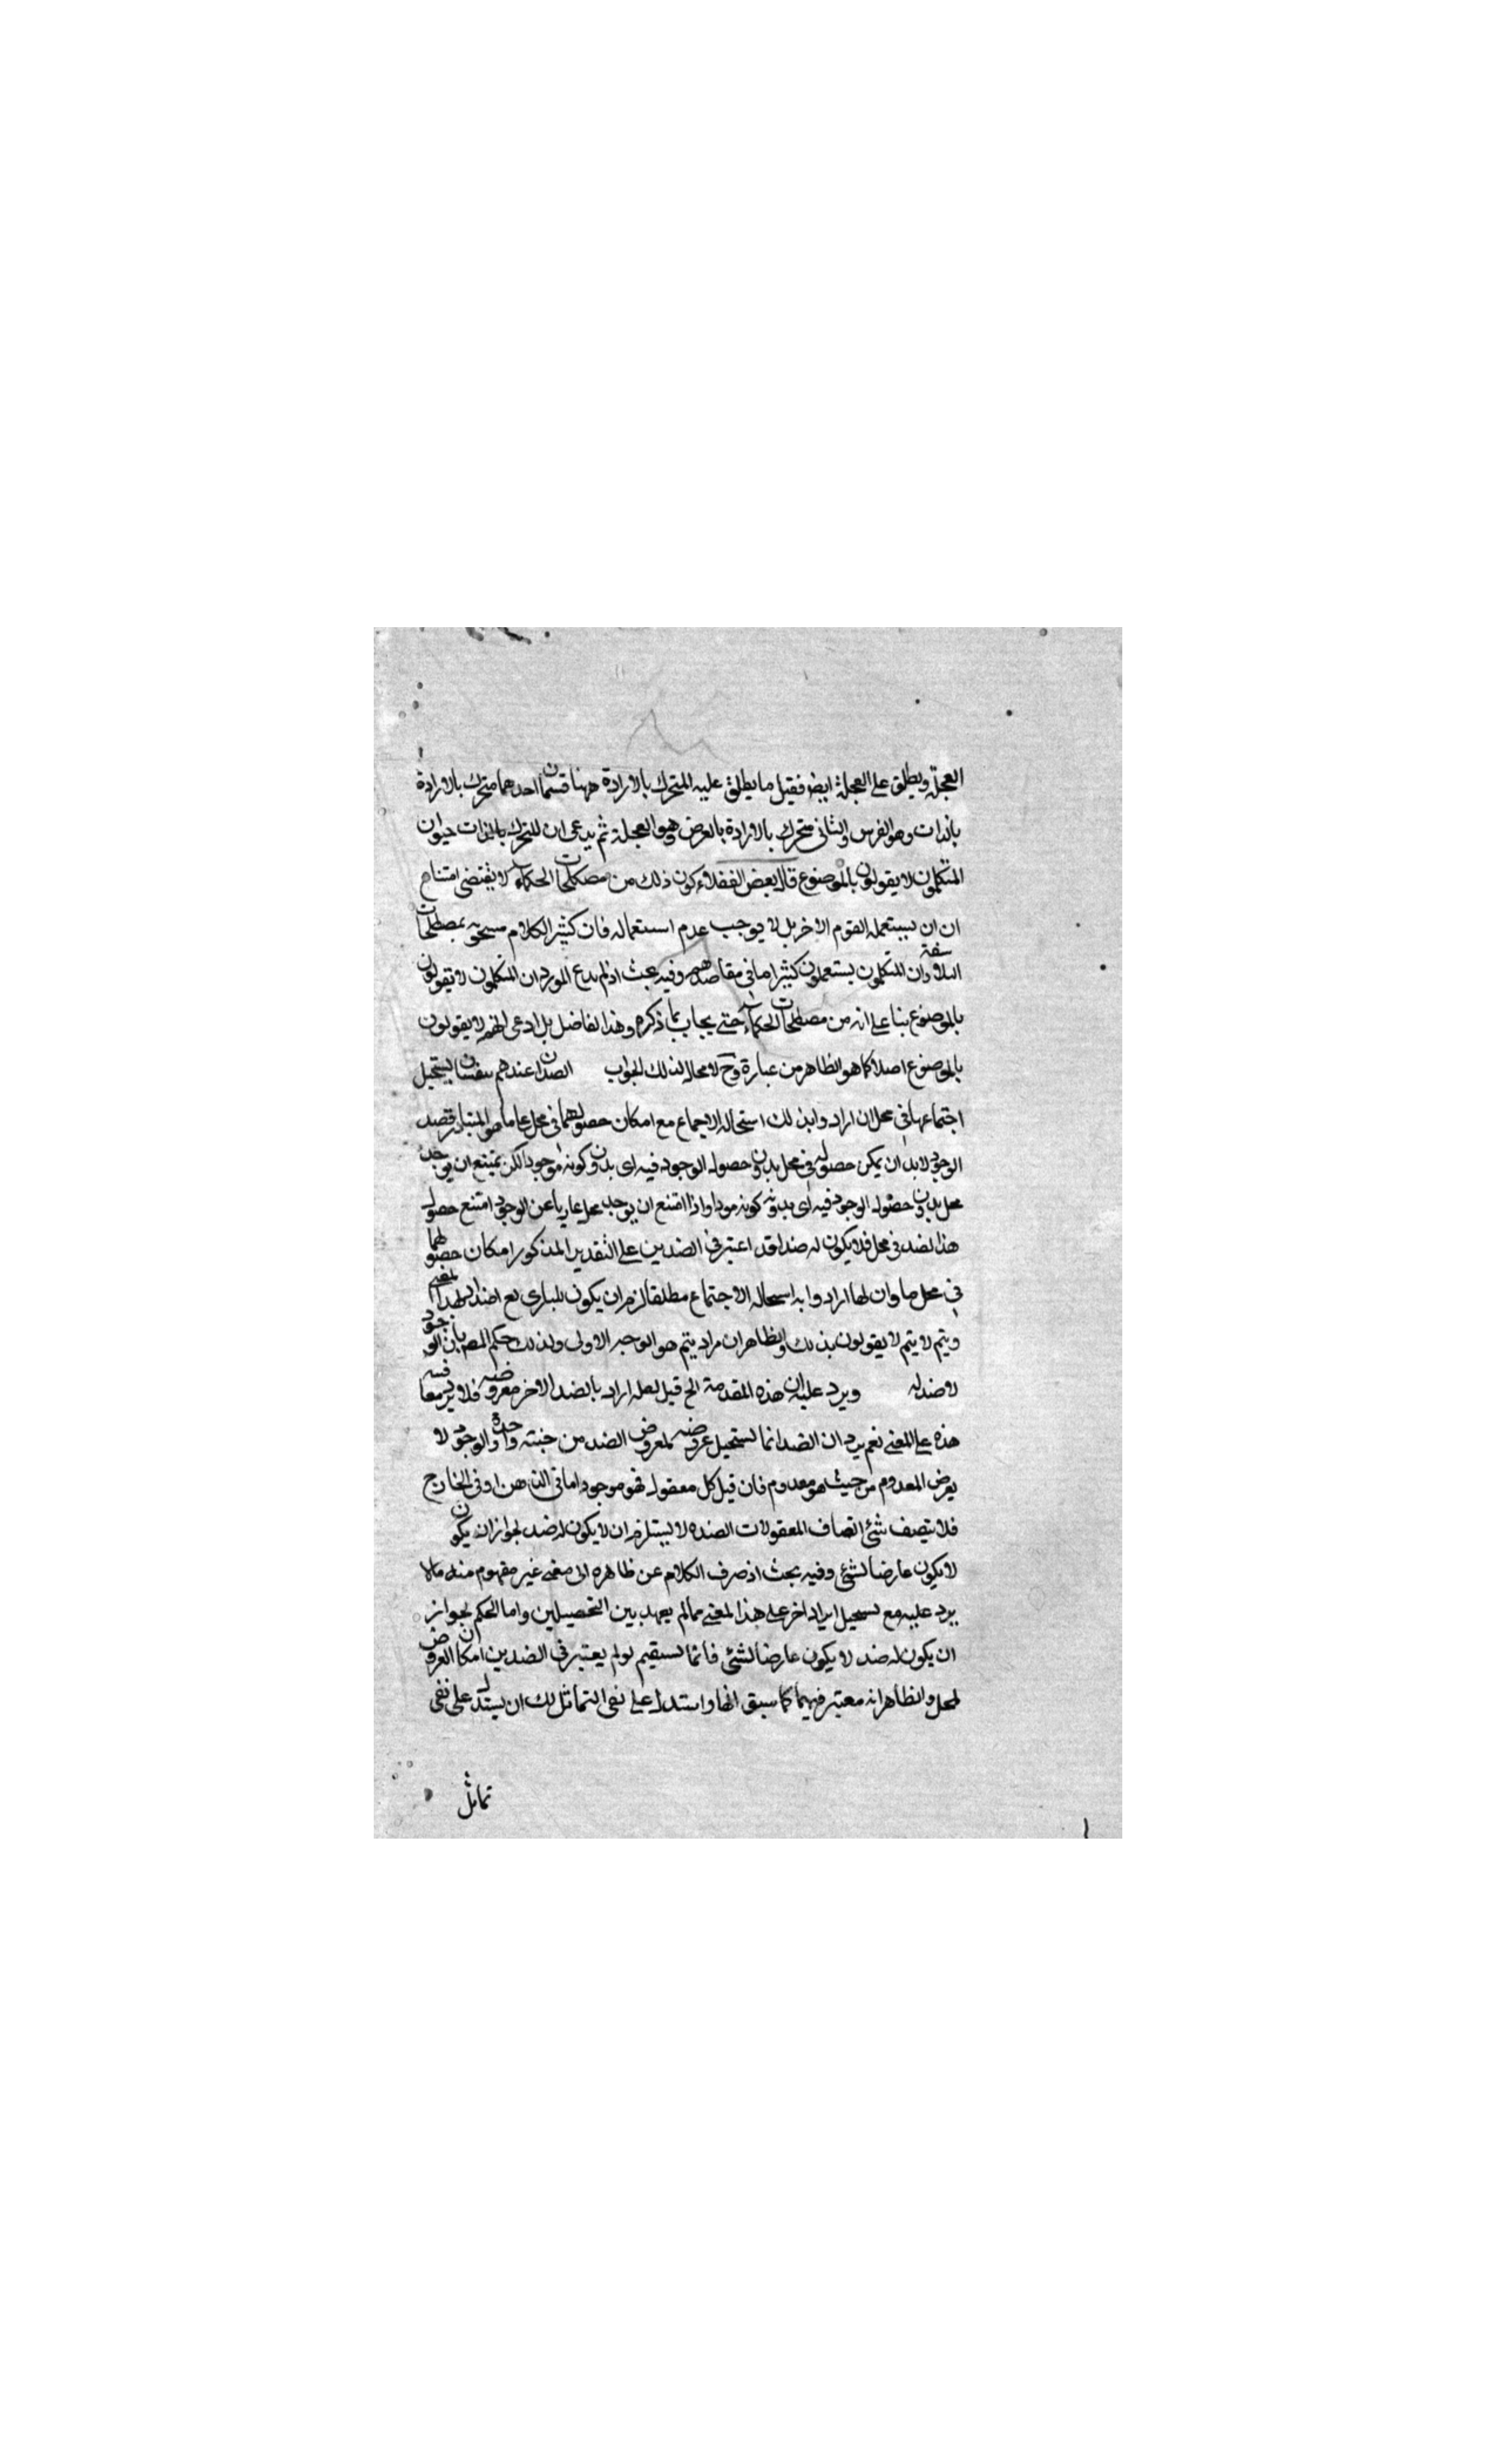 العجلة ويطلق على العجلة ايض فقيل ما يطلق عليه المتحرك بالارادة ههنا قسمان احدهما متحرك بالارادة
بالذات وهو الفرس والثانى متحرك بالارادة بالعرض وهو العجلة ثم يدعى ان للتحرك بالذات حيوان
المتكلمون لا يقولون بالموضوع قال بعض الفضلاء كون ذلك من مصطلحات الحكماء لا يقتضى امتناع
ان ان يستعمله القوم الاخر بل لا يوجب عدم استعماله فان كثير الكلام مسحوبة بمصطلحات
الفلاسفة وان المتكلمون يستعملون كثيرا ما فى مقاصدهم وفيه بحث اذ لم يدع المورد ان المتكلمون لا يقولون
بالموضوع بناء على انه من مصطلحات الحكماء حتى يجاب بما ذكره وهذا الفاضل بل ادعى انهم لا يقولون
بالموضوع اصلا كما هو الظاهر من عبارة وح لا محالة لذلك الجواب الضدان عندهم يستحيل
اجتماعهما فى محل ان اراد وا بذلك استحالة الاجماع مع امكان حصولهما فى محل ما هو المتبادر قصد
الوجود لا بد ان يمكن حصوله فى محل بدون حصول الوجود فيه اى بدون كونه موجودا لكن يمتنع ان يوجد
محل بدون حصول الوجود فيه اى بدونه كونه مودا واذا امتنع ان يوجد محل عاريا عن الوجود امتنع حصول
هذا لضد فى محل فلا يكون له ضد اقد اعتبر فى الضدين على التقدير المذكور امكان حصولهما
فى محل ما وان لها اراد وا به اسحالة الاجتماع مطلقا لزم ان يكون للبارى تع اضداد
ويتم لا يتم لا يقولون بذلك والظاهر ان مراد يتم هو الوجه الاولى ولذلك حكم المص بان الوجود
لا ضد له ويرد عليه ان هذه المقدمة الخ قيل لعله اراد بالضد الاخر معروضه فلا يرد
هذه على المعنى نعم يرد ان الضد انما يستحيل عروضه لمعروض الضد من واحدة والوجود لا
يعرض المعدوم من حيث هو معدوم فان قيل كل معقول فهو موجود اما فى الذهن او فى الخارج
فلا يتصف شئ اتصاف المعقولات الضده لا يستلزم ان لا يكون له ضد لجواز ان يكون
لا يكون عارضا لشئ وفيه بحث اذ صرف الكلام عن ظاهره الى معنى غير مفهوم منه مالا
يرد عليه مع تسجيل ايراد اخر على هذا المعنى مما لم يعهد بين التحصيلين واما الحكم لجواز
ان يكون له ضد لا يكون عارضا لشئ فانما يستقيم لو لم يعتبر فى الضدين امكان العروض
لمحل والظاهر انه معتبر فيهما كما سبق انها واستدل على نفى التماثل لك ان يستدل على نفى
تماثل